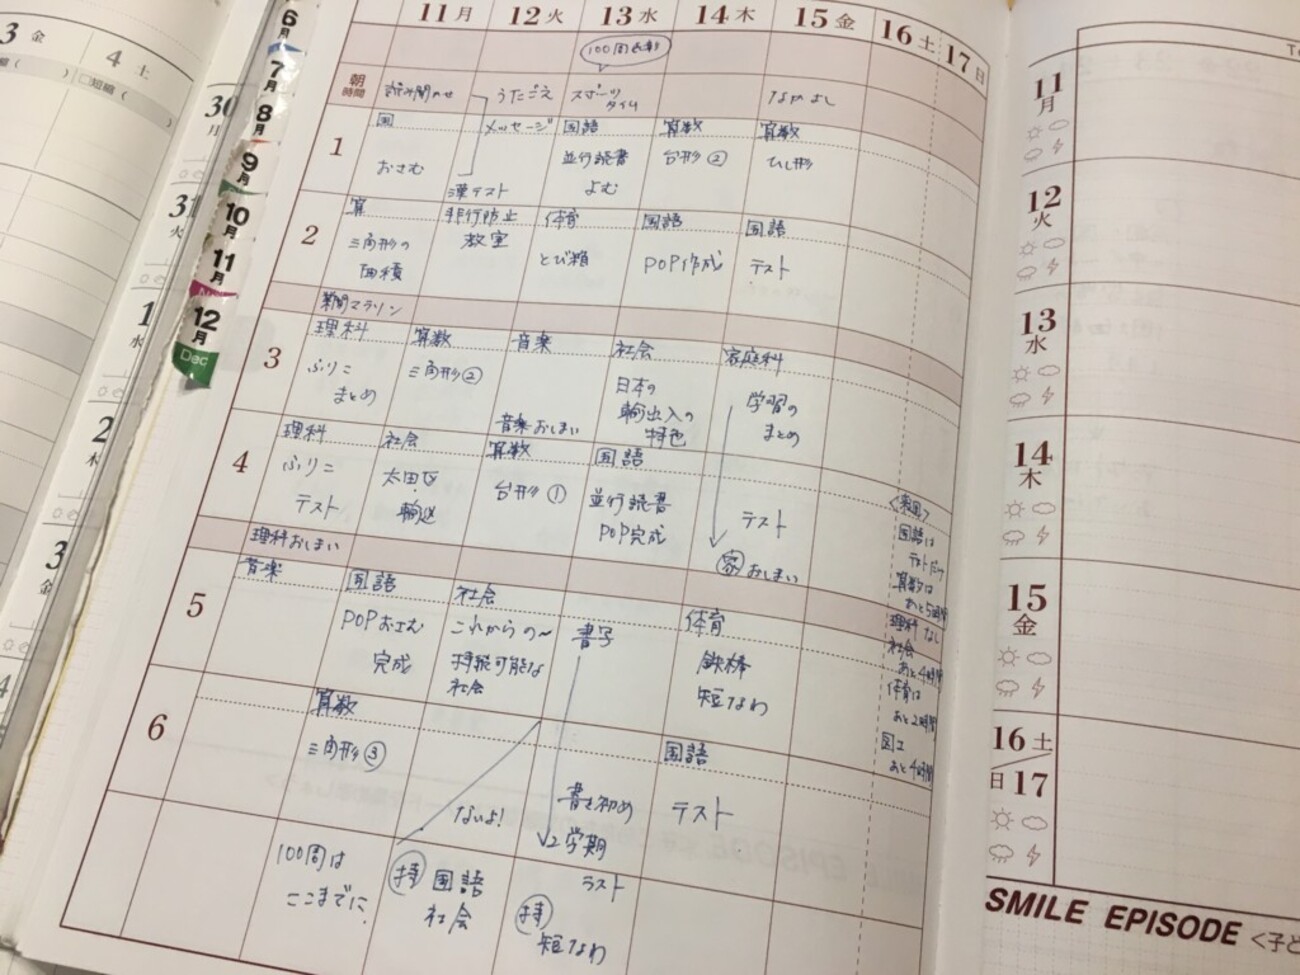 3 金
4 土
□短縮 (
)
30
月
31
火
1
水
2
木
3
金
4
6月
7月
8月
9月
10月
11月
12月
Dec
11 月
12 火
13 水
14 木
15 金
16 土
17 日
100周表彰
朝
時間
読み聞かせ
うたごえ
スポーツ
タイム
なかよし
1
国
おさむ
メッセージ
漢テスト
国語
並行読書
よむ
算数
台形②
算数
ひし形
2
算
三角形の
面積
非行防止
教室
体育
とび箱
国語
POP作成
国語
テスト
業間マラソン
3
理科
ふりこ
まとめ
算数
三角形②
音楽
音楽おしまい
社会
日本の
輸出入の
特色
家庭科
学習の
まとめ
4
理科
ふりこ
テスト
社会
太田区
輸送
算数
台形①
国語
並行読書
POP完成
テスト
家おしまい
理科おしまい
5
音楽
国語
POPおさむ
完成
社会
これからの〜
持続可能な
社会
書写
体育
鉄棒
短なわ
6
算数
三角形③
ないよ!
書き初め
2学期
ラスト
国語
テスト
100周は
ここまでに.
持 国語
社会
持
短なわ
国語は
テストだけ
算数は
あと5時間
理科 なし
社会
あと4時間
体育は
あと2時間
図工
あと4時間
11
月
12
火
13
水
14
木
15
金
16 土
日 17
SMILE EPISODE <子ど